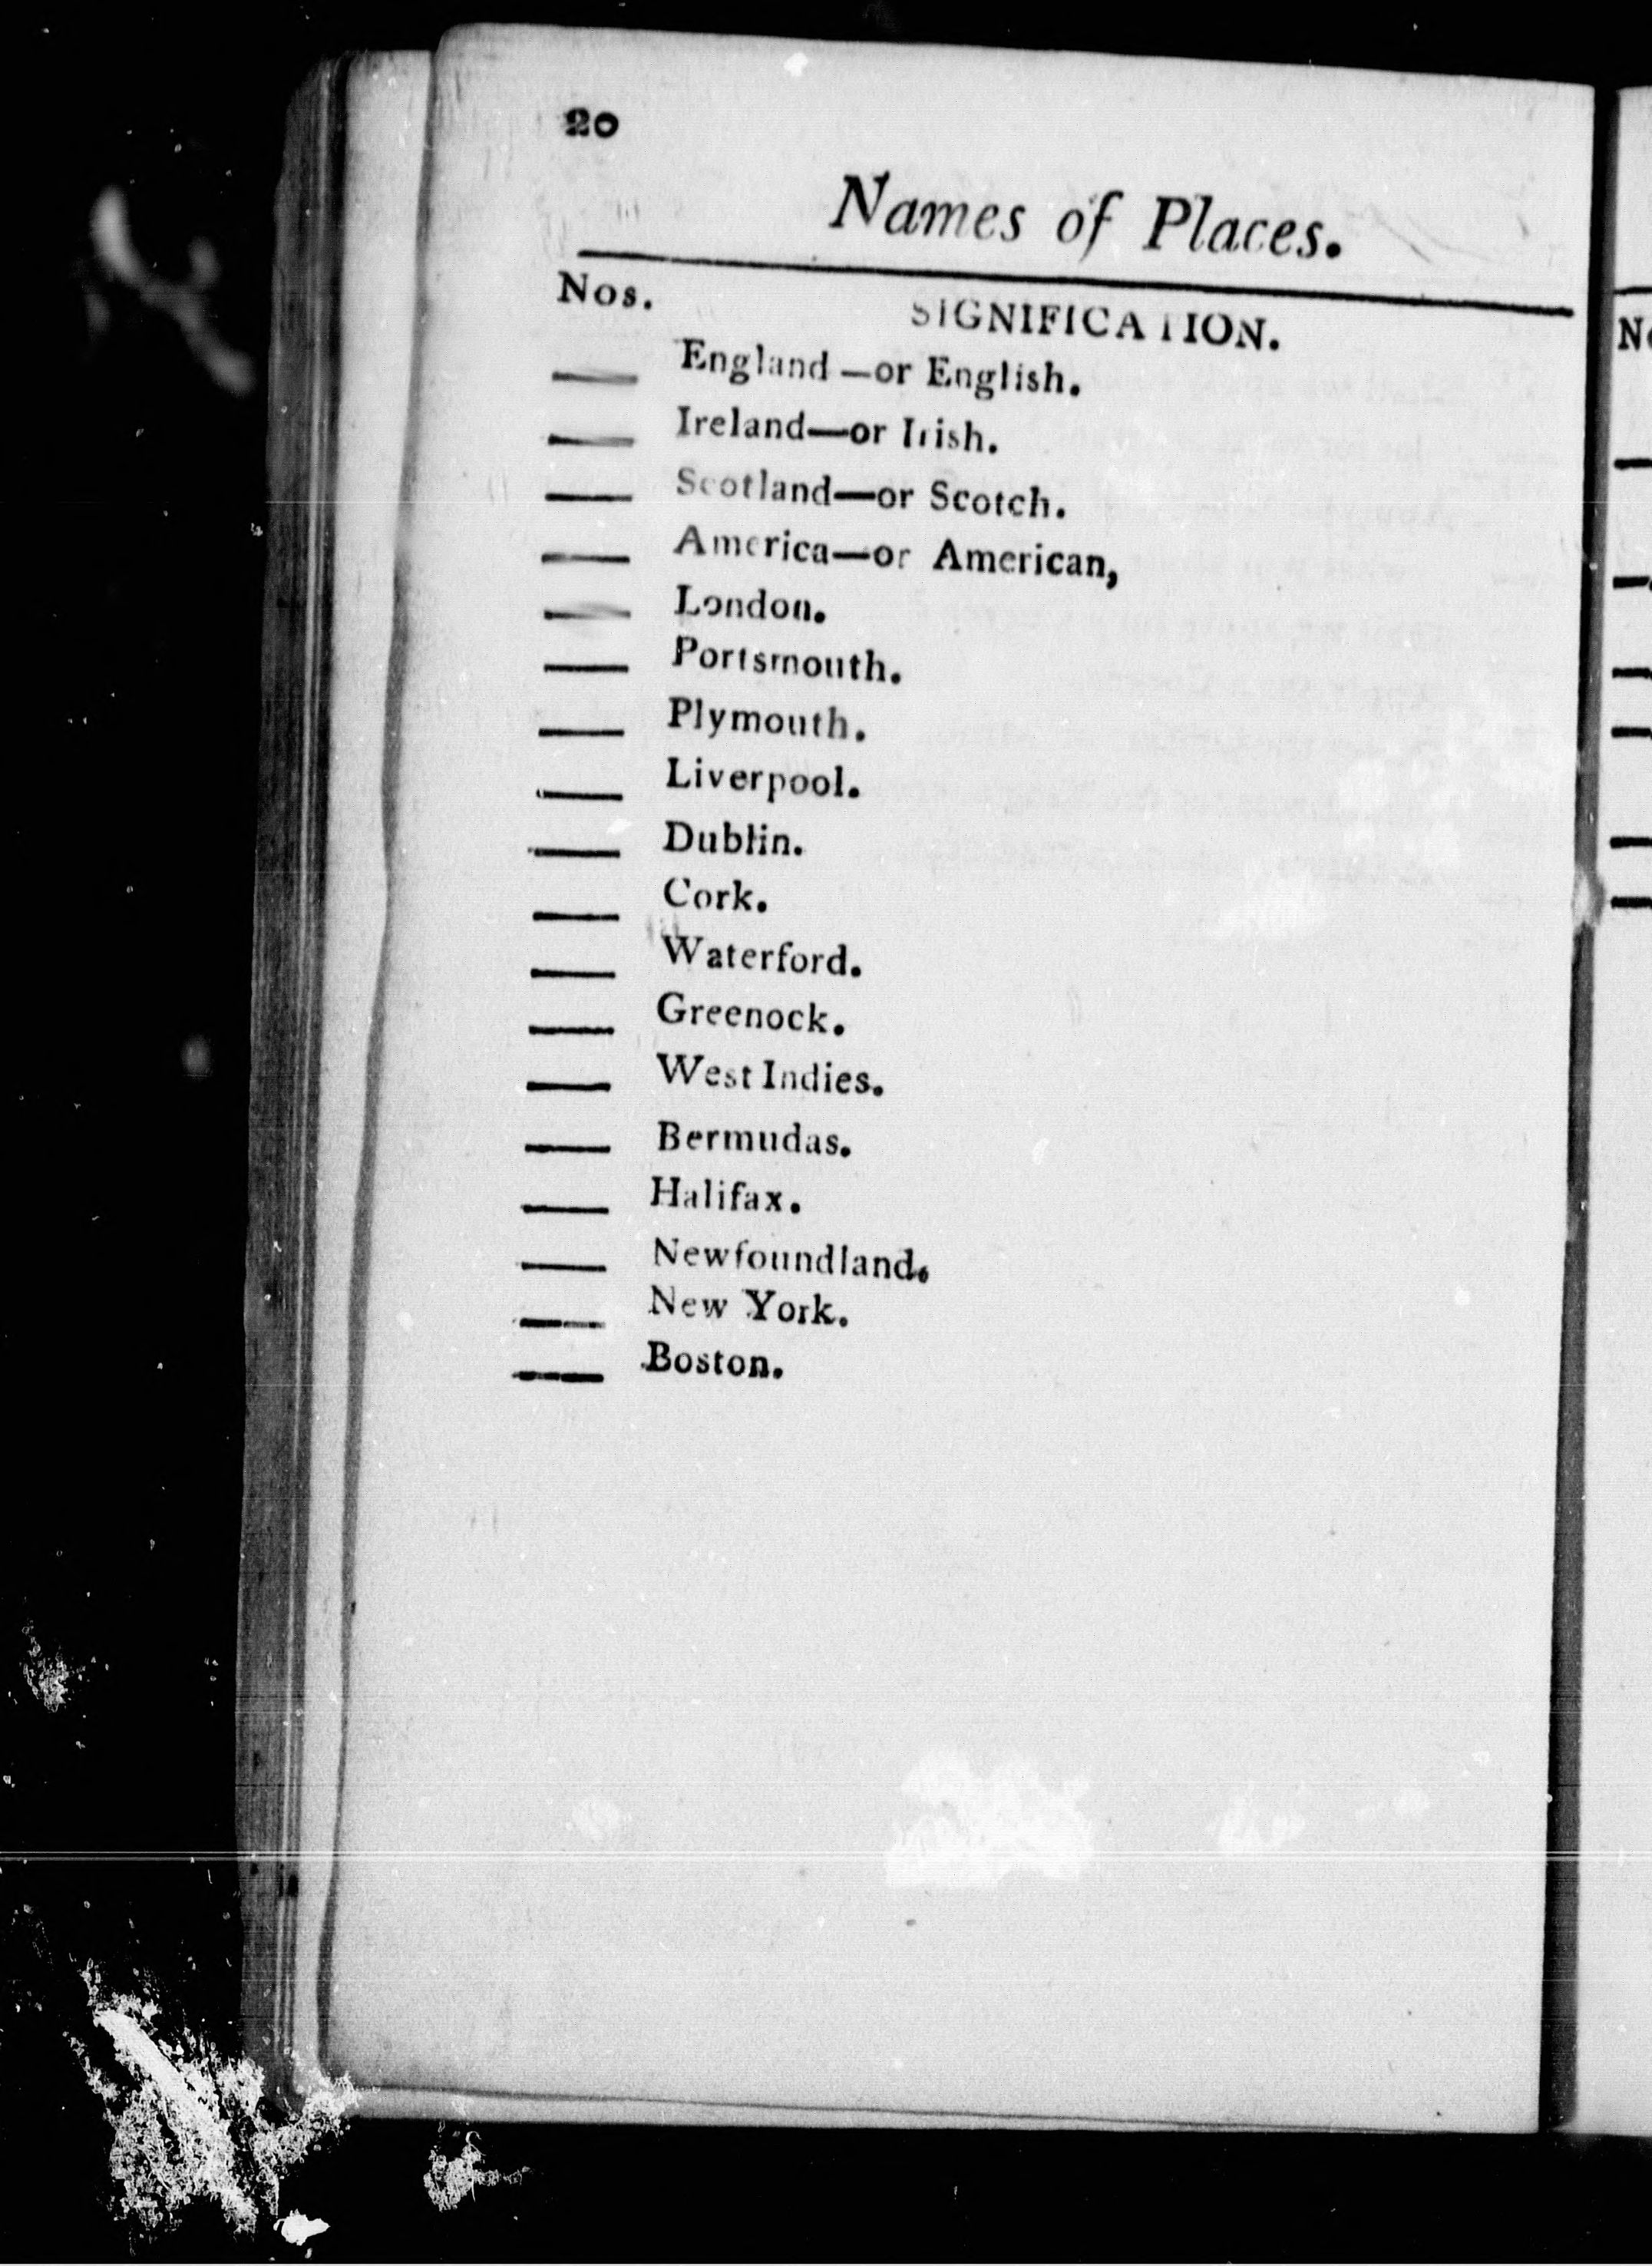 20
Names of Places.
Nos.
SIGNIFICATION.
—— England—or English.
—— Ireland—or Irish.
—— Scotland—or Scotch.
—— America—or American,
—— London.
—— Portsmouth.
—— Plymouth.
—— Liverpool.
—— Dublin.
—— Cork.
—— Waterford.
—— Greenock.
—— West Indies.
—— Bermudas.
—— Halifax.
—— Newfoundland.
—— New York.
—— Boston.